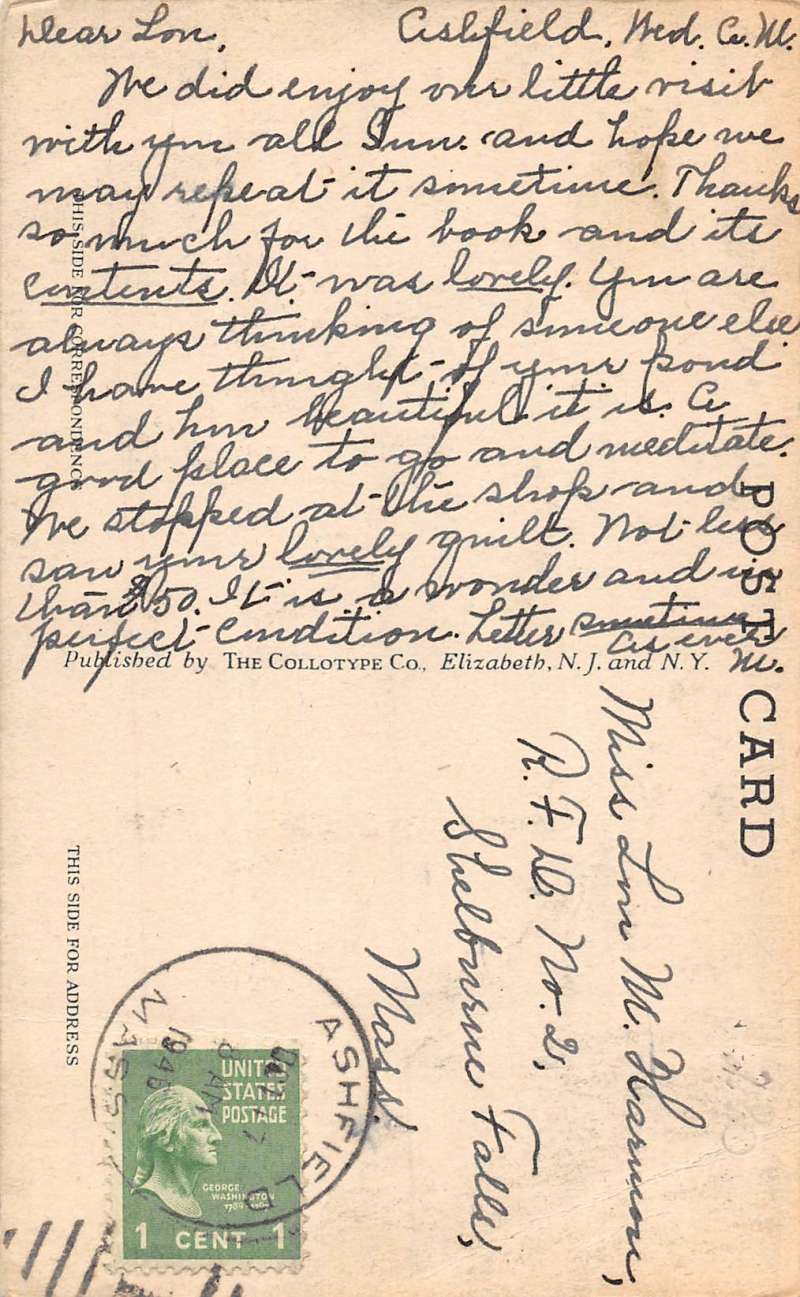 Dear Lou, Ashfield, Wed. A. M.
We did enjoy our little visit
with you all Sun. and hope we
may repeat it sometime. Thanks
so much for the book and its
contents. It was lovely. You are
always thinking of someone else.
I have thought of your pond
and how beautiful it is. A
good place to go and meditate.
We stopped at the shop and
saw your lovely quilt. Not less
than $50. It is a wonder and in
perfect condition. Letter sometime
As ever
M.
THIS SIDE FOR CORRESPONDENCE
Published by THE COLLOTYPE CO., Elizabeth, N. J. and N. Y.
POST CARD
Miss Lou M. Harmon,
R. F. D. No. 2,
Shelburne Falls,
Mass.
THIS SIDE FOR ADDRESS
ASHFIELD
8 AM
MASS
UNITED
STATES
POSTAGE
GEORGE
WASHINGTON
1 CENT 1